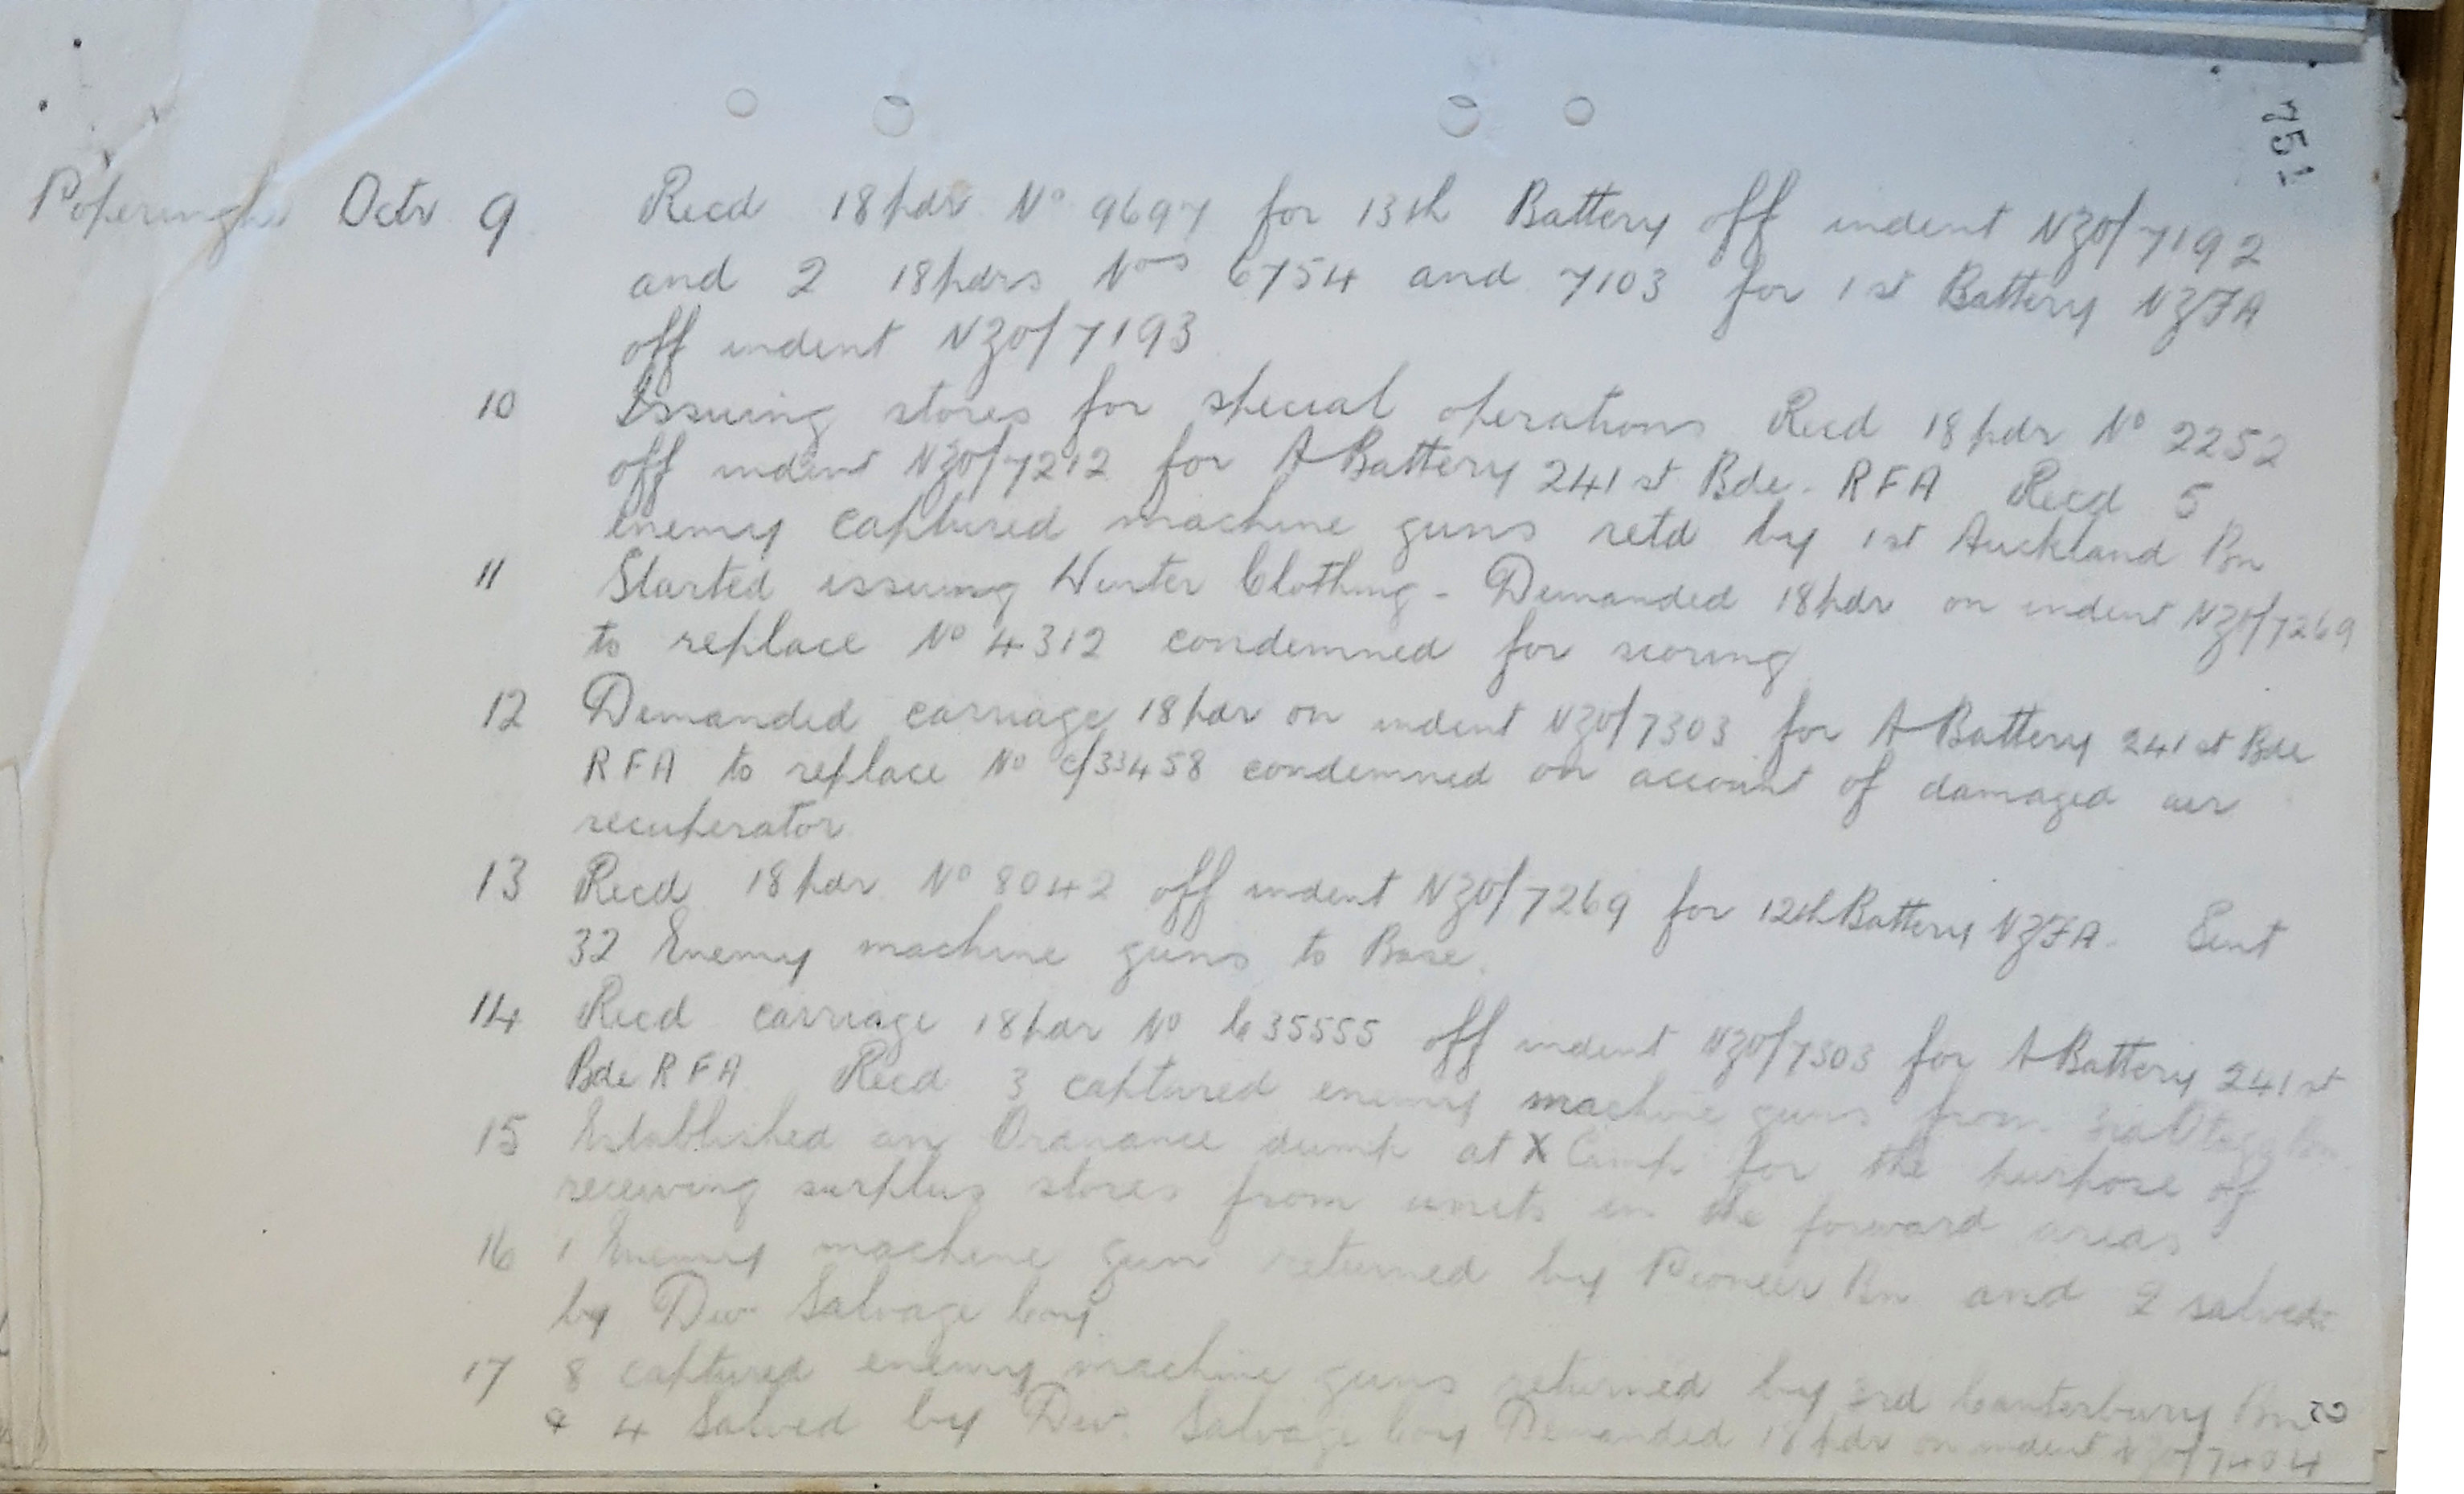 751
Poperinghe Octr 9 Recd 18 pdr No 9697 for 13th Battery off indent NZO/7192
and 2 18 pdrs Nos 6754 and 7103 for 1st Battery NZFA
off indent NZO/7193
10 Issuing stores for special operations Recd 18 pdr No 2252
off indent NZO/7212 for A Battery 241st Bde. RFA Recd 5
enemy captured machine guns retd by 1st Auckland Bn
11 Started issuing Winter Clothing - Demanded 18 pdr on indent NZO/7269
to replace No 4312 condemned for scoring
12 Demanded carriage 18 pdr on indent NZO/7303 for A Battery 241st Bde
RFA to replace No C/33458 condemned on account of damaged air
recuperator
13 Recd 18 pdr No 8042 off indent NZO/7269 for 12th Battery NZFA. Sent
32 Enemy machine guns to Base.
14 Recd carriage 18 pdr No C 35555 off indent NZO/7303 for A Battery 241st
Bde RFA Recd 3 captured enemy machine guns from 3rd Otago Bn
15 Established an Ordnance dump at X Camp for the purpose of
receiving surplus stores from units in the forward areas
16 1 Enemy machine gun returned by Pioneer Bn and 2 salved
by Div Salvage Coy.
17 8 captured enemy machine guns returned by 3rd Canterbury Bn
& 4 Salved by Div. Salvage Coy Demanded 18 pdr on indent NZO/7404